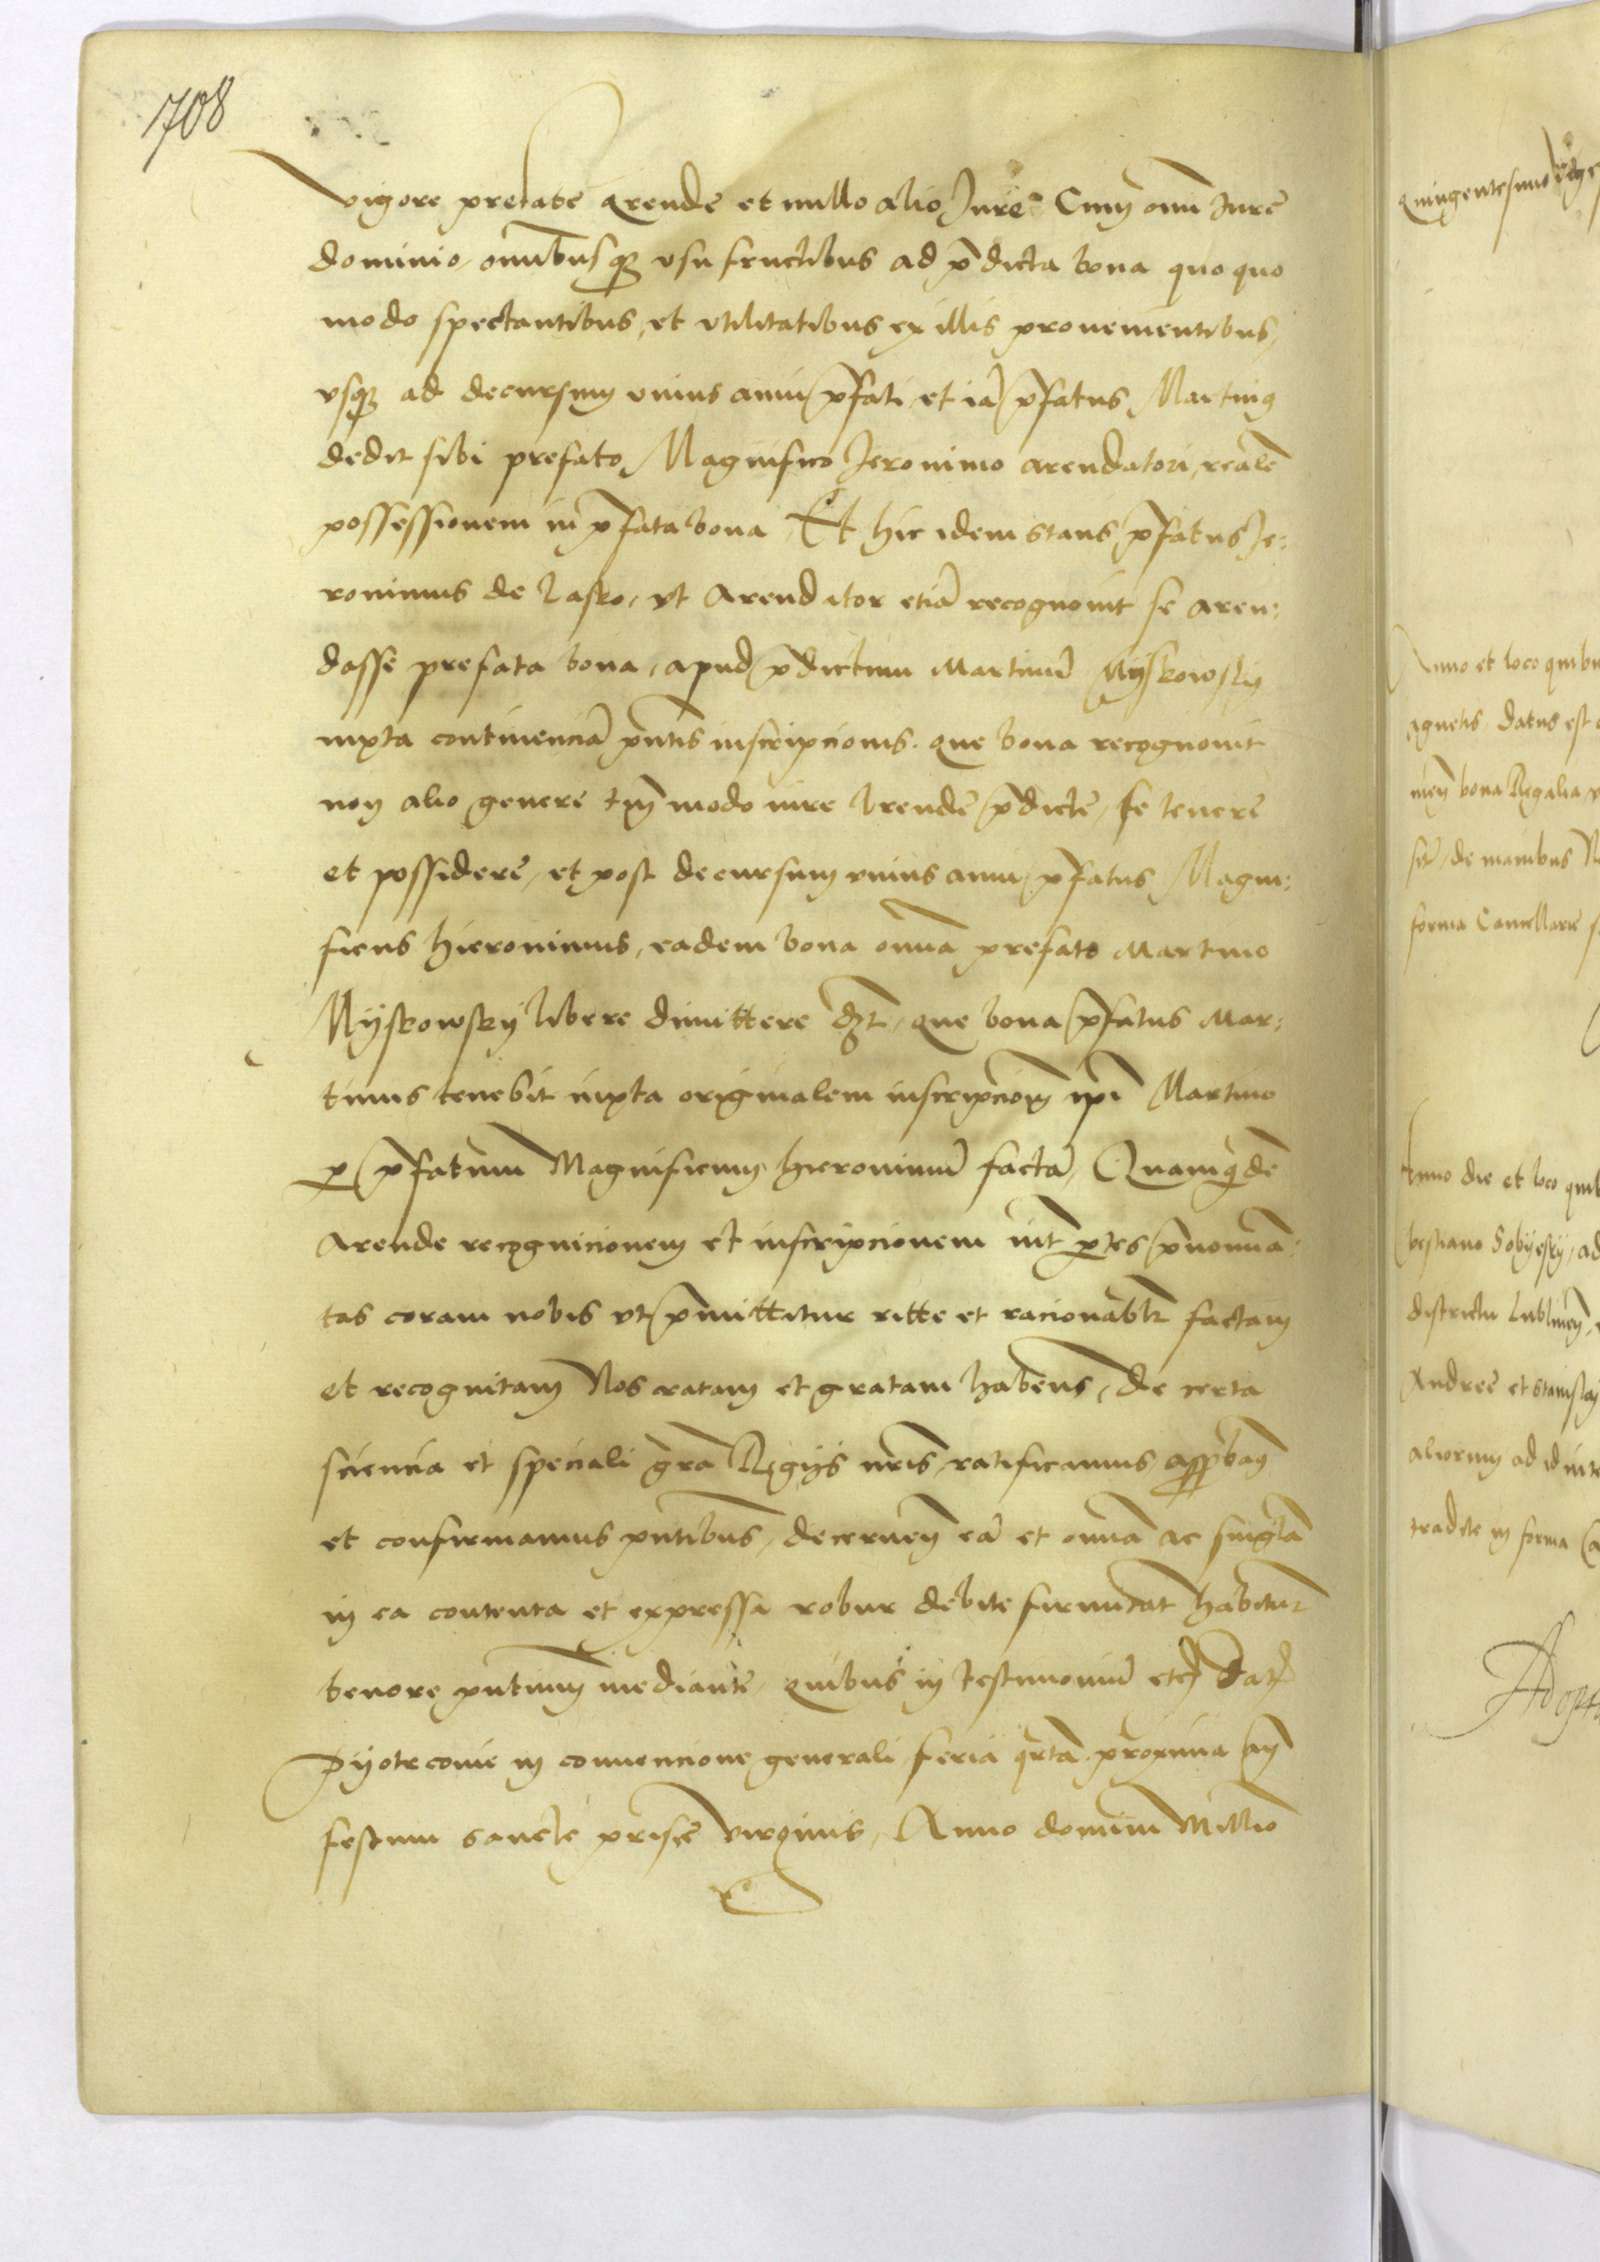 708
vigore prelate arende et nullo alio Jure Cum omi Jure
dominio omnibusque usu fructibus ad pdicta bona quoquo
modo spectantibus, et utilitatibus ex illis provenientibus,
usque ad decursum unius anni pfati, et iã pfatus Martinus
dedit sibi prefato Magnifico Jeronimo arendatori, realẽ
possessionem in pfata bona Et hic idem stans pfatus Je:
ronimus de Lasko, ut Arendator etiã recognovit se aren:
dasse prefata bona, apud pdictum Martinũ Myskowsky
iuxta continenciã pntis inscripcionis. que bona recognovit
non alio genere tm̃modo iure Arende pdicte, se tenere
et possidere, et post decursum unius anni pfatus Magni:
ficus Hieronimus, eadem bona omnia prefato Martino
Myskowsky libere dimittere dz̃t, que bona pfatus Mar:
tinus tenebit iuxta originalem inscripcionẽ ipi Martino
p pfatum Magnificum Hieronimũ factã, Quamquidẽ
Arende recognicionem et inscripcionem int ptes pnomina:
tas coram nobis ut pmittitur ritte et racionablr factam
et recognitam Nos ratam et gratam habens, de certa
sciencia et speciali grã Regijs nris, ratificamus, approbam
et confirmamus pntibus, decernen eã et omnia ac singlã
in ea contenta et expressa robur debite firmitat habitur
tenore pntium mediante, quibus in testimoniũ etc Dat
Pyotrcovie in convencione generali feria qrta proxima an
festum sancte prisce virginis, Anno domini Millmo
Quingentesimo
Anno et loco quibu
Agnetis, datus est
men bona Regalia
sit, de manibus
forma Cancellarie
Anno die et loco quib
bestiano Sobyesky, ad
districtu Lublinen,
Andree et Stanislai
aliorum ad id
tradite in forma Ca